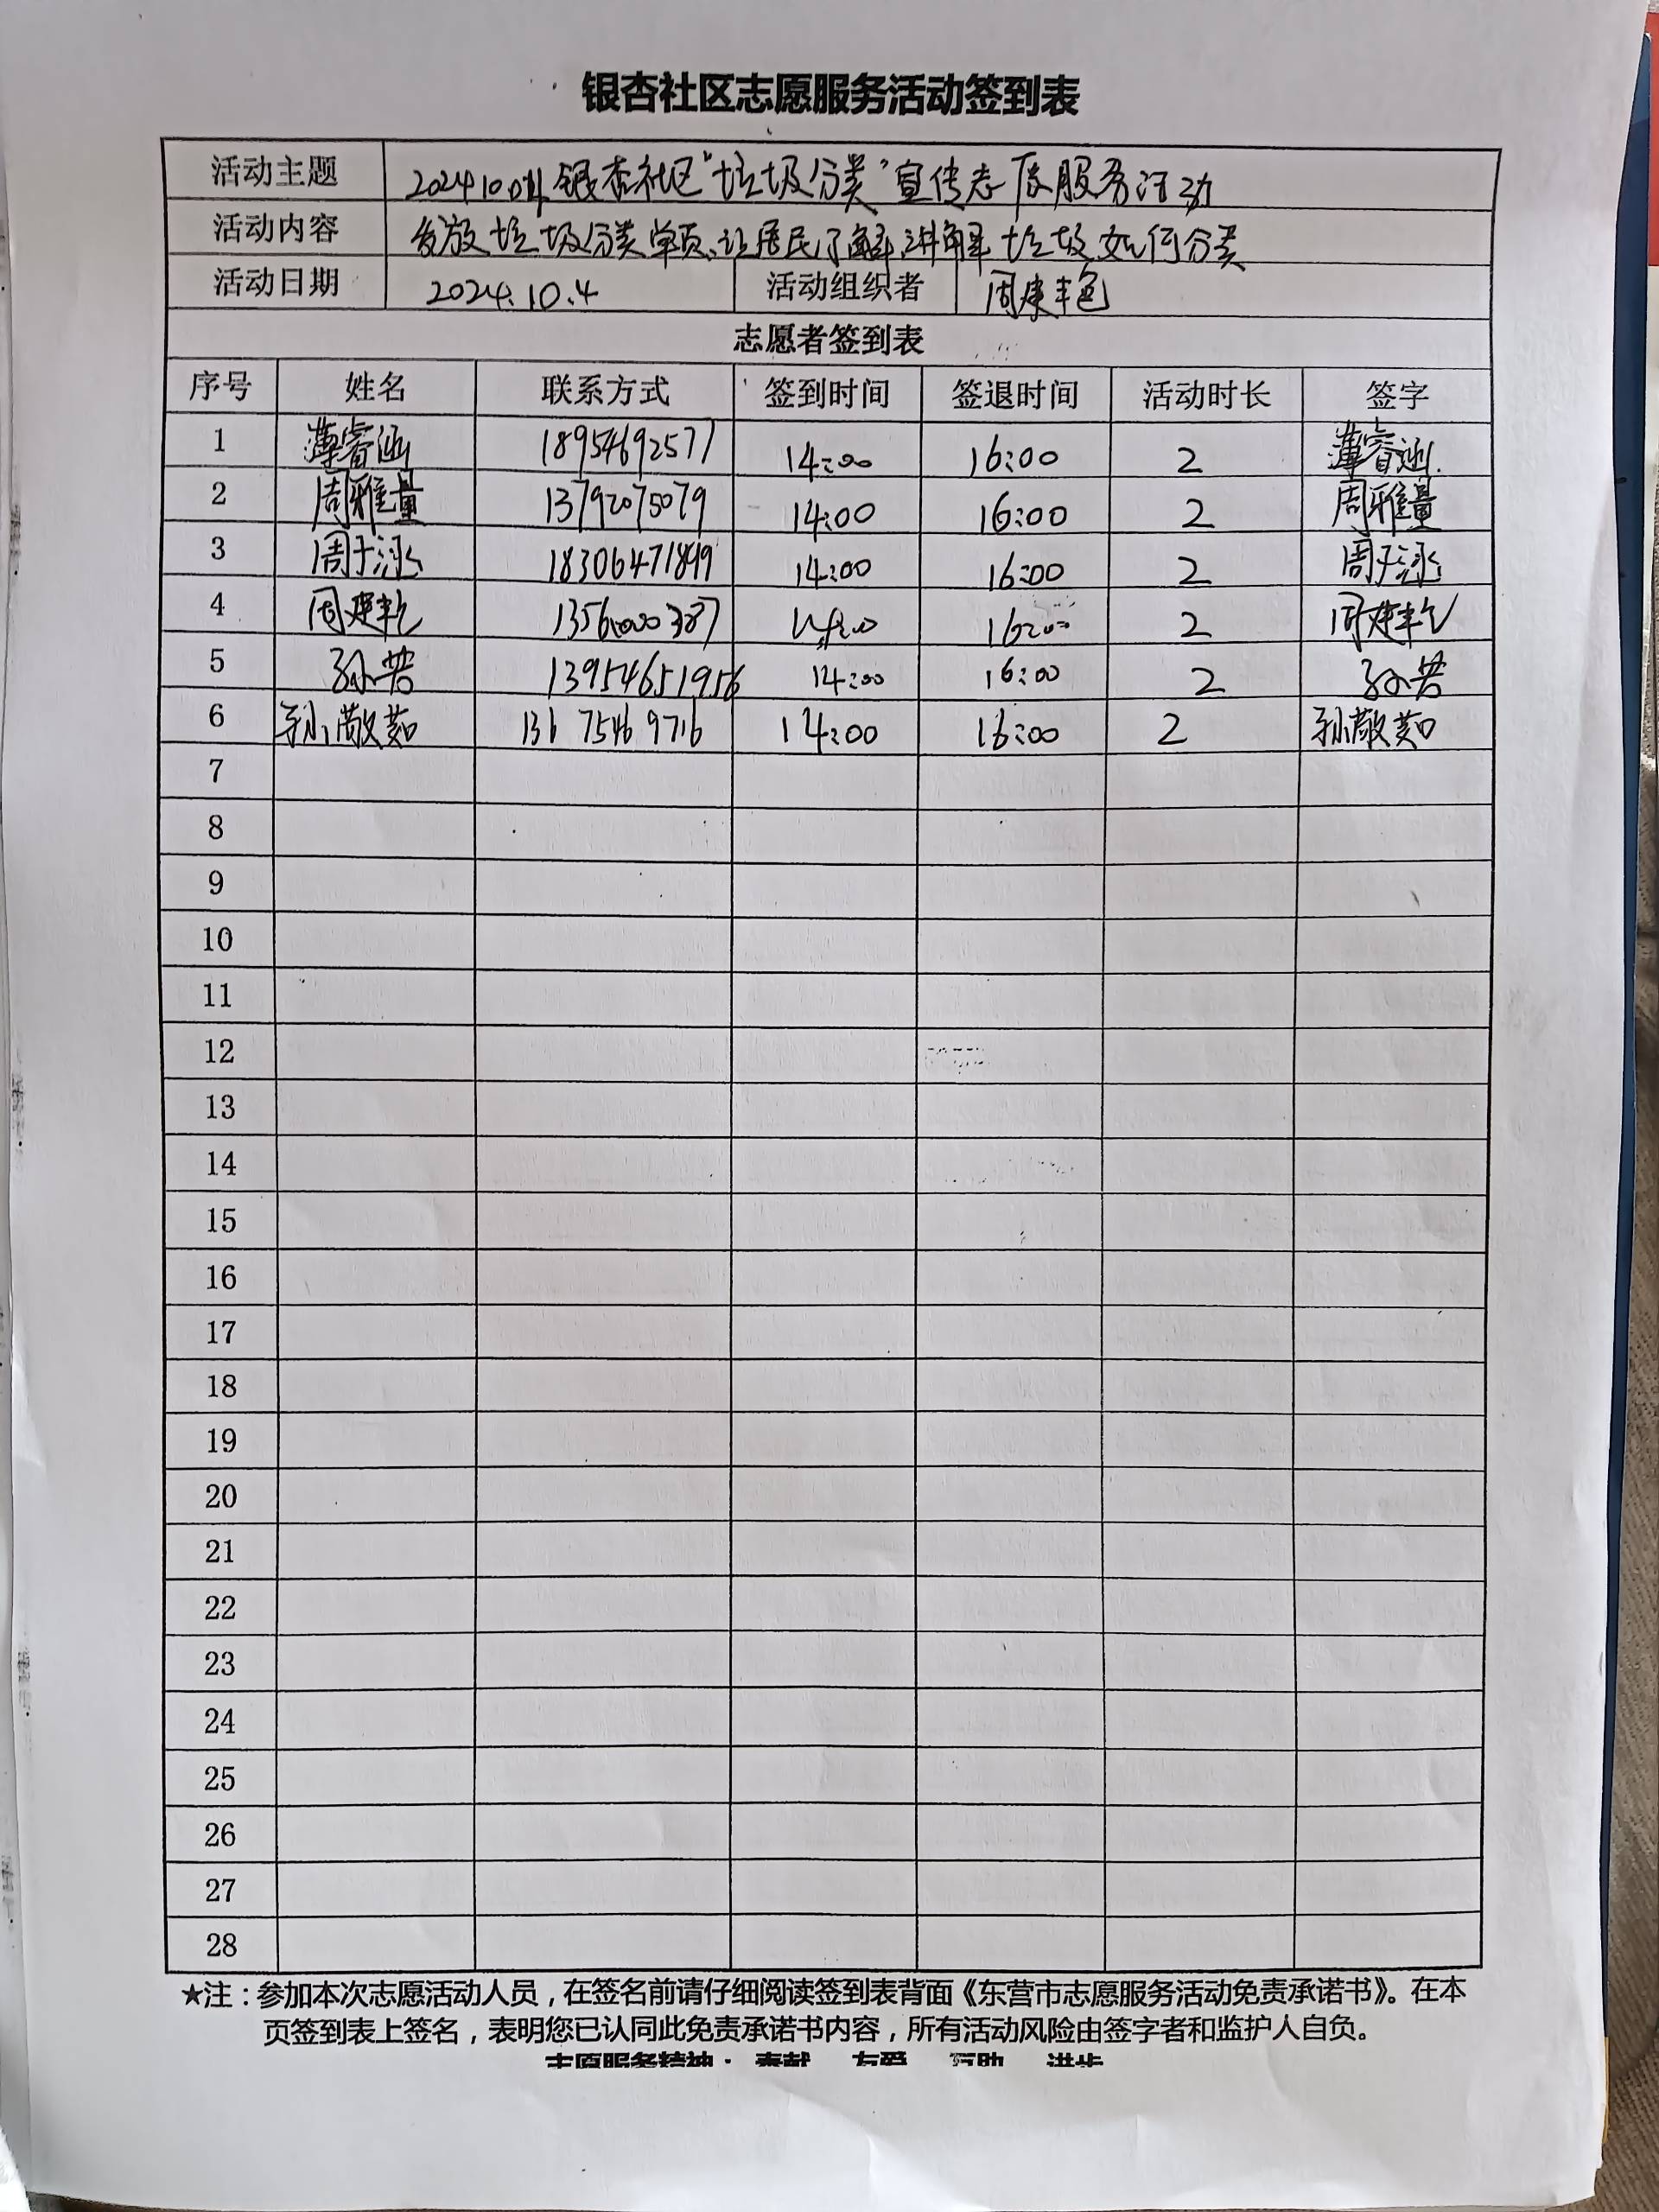 银杏社区志愿服务活动签到表
活动主题 20241004银杏社区“垃圾分类”宣传志愿服务活动
活动内容 发放垃圾分类单页、让居民了解讲解垃圾如何分类
活动日期 2024.10.4 活动组织者 周建
志愿者签到表
序号 姓名 联系方式 签到时间 签退时间 活动时长 签字
1 薄睿涵 18954692577 14:00 16:00 2 薄睿涵
2 周雅量 13792075079 14:00 16:00 2 周雅量
3 周于泳 18306471899 14:00 16:00 2 周于泳
4 周建 14:00 16:00 2 周建
5 孙芸 13954651956 14:00 16:00 2 孙芸
6 孙敬茹 13675469716 14:00 16:00 2 孙敬茹
7
8
9
10
11
12
13
14
15
16
17
18
19
20
21
22
23
24
25
26
27
28
★注：参加本次志愿活动人员，在签名前请仔细阅读签到表背面《东营市志愿服务活动免责承诺书》。在本
页签到表上签名，表明您已认同此免责承诺书内容，所有活动风险由签字者和监护人自负。
志愿服务精神：奉献 友爱 互助 进步